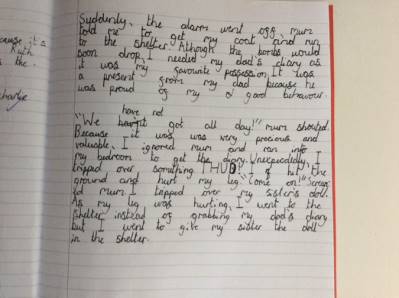 Suddenly, the alarm went off, mum
told me to get my coat and run
to the shelter. Although the bombs would
soon drop, I needed my dad's diary as
it was my favourite possession. It was
a present from my dad because he
was proud of my good behaviour.
have not
"We haven't got all day!" mum shouted.
Because it was very precious and
valuable, I ignored mum and ran into
my bedroom to get the diary. Unexpectedly, I
tripped over something THUD! I hit the
ground and hurt my leg. "Come on!" scream
ed mum. I tripped over my sister's doll.
As my leg was hurting, I went to the
shelter instead of grabbing my dad's diary
but I went to give my sister the doll
in the shelter.
ecause it's
Ruth
s the